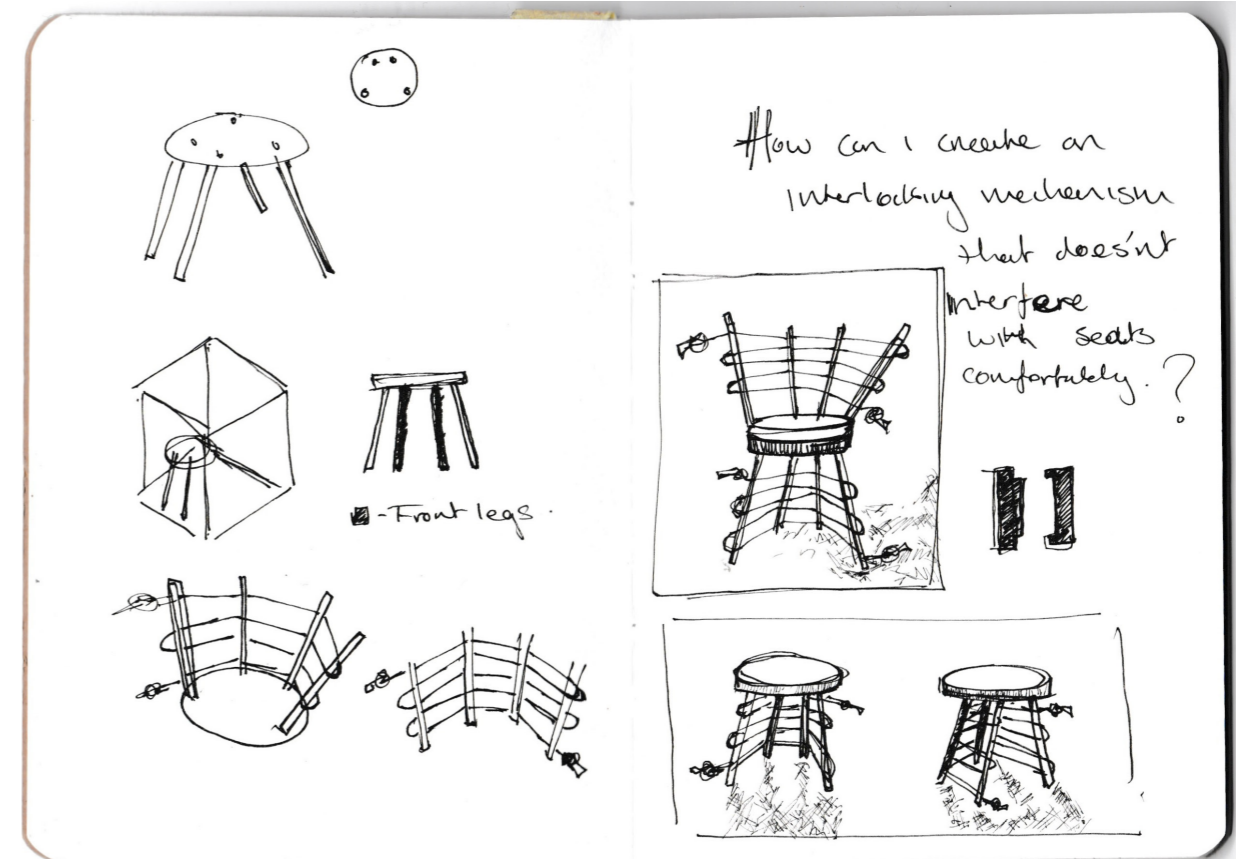 - Front legs.
How can i create an
interlocking mechanism
that does'nt
interfere
with seats
comfortably.?